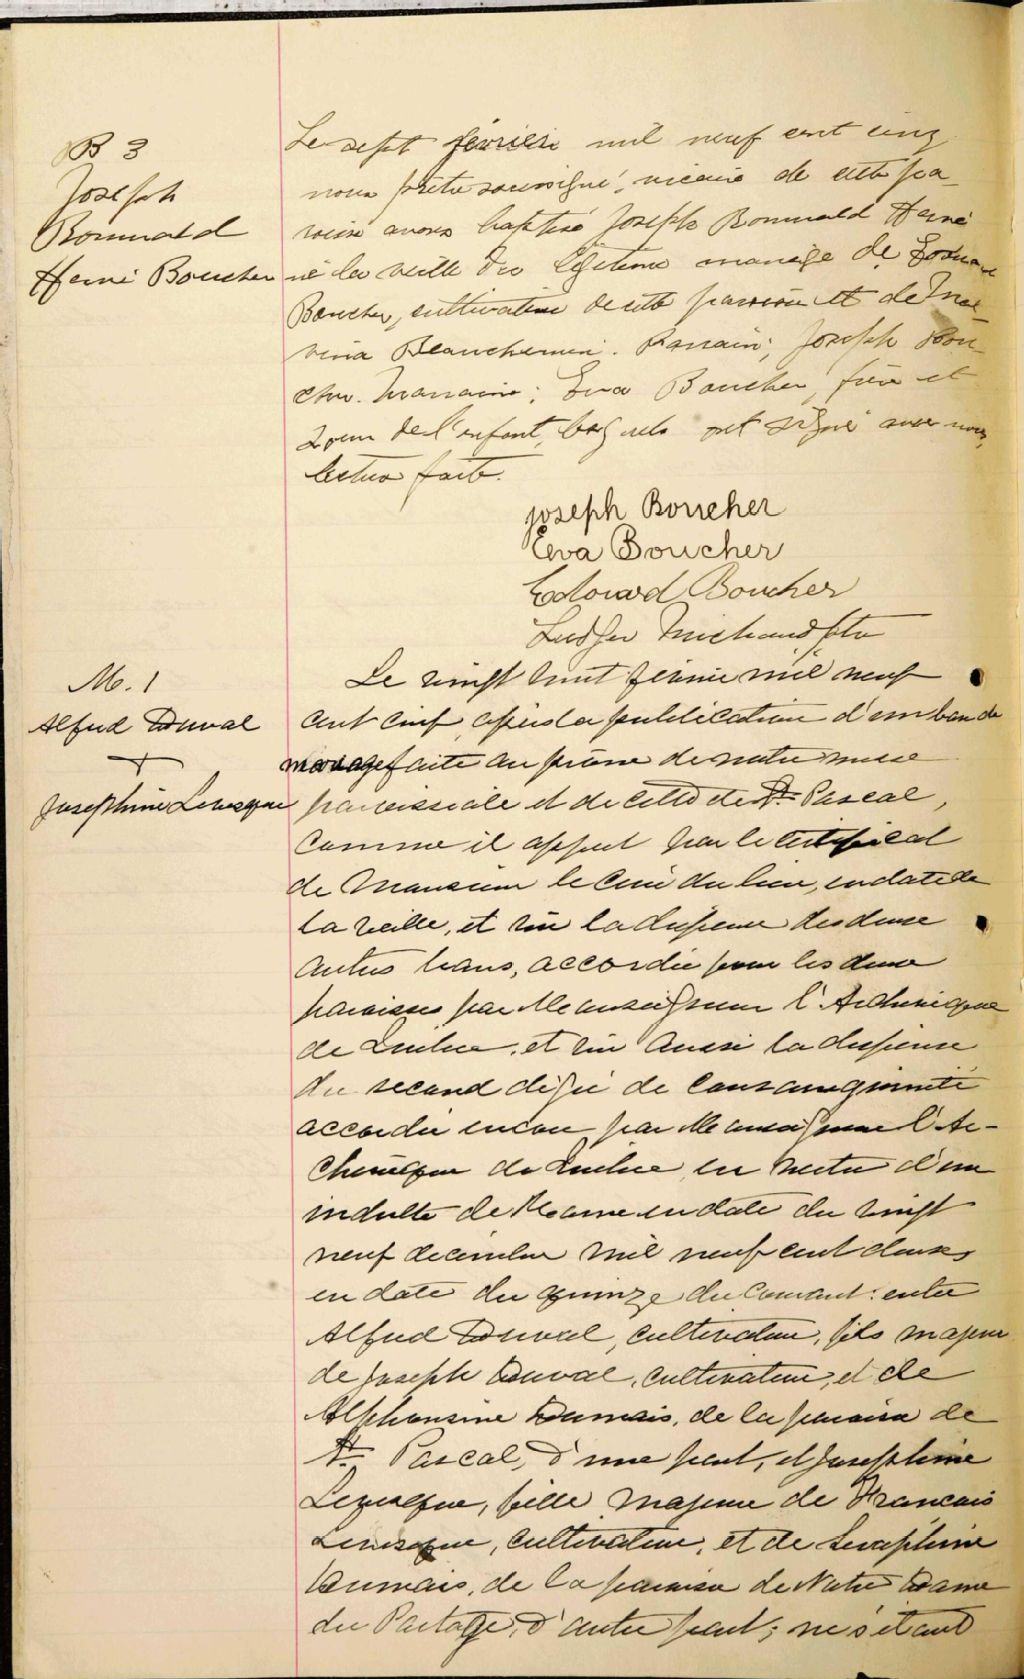 B 3
Joseph
Romuald
Hervé Boucher
Le sept février mil neuf cent cinq
nous prêtre soussigné, vicaire de cette pa-
roisse avons baptisé Joseph Romuald Hervé
né la veille du légitime mariage de Edouard
Boucher, cultivateur de cette paroisse et de Mal-
vina Beauchemin. Parrain; Joseph Bou-
cher. Marraine; Eva Boucher, frère et
soeur de l'enfant, lesquels ont signé avec nous,
lecture faite.
Joseph Boucher
Eva Boucher
Edouard Boucher
Ludger Michaud ptre
M. 1
Alfred Duval
+
Josephine Levesque
Le vingt huit février mil neuf
cent cinq, après la publication d'un ban de
mariage faite au prône de notre messe
paroissiale et de celle de St Pascal,
comme il appert par le certificat
de Monsieur le Curé du lieu, en date de
la veille, et vu la dispense des deux
autres bans, accordée pour les deux
paroisses par Monseigneur l'Archevêque
de Québec, et vu aussi la dispense
du second degré de consanguinité
accordée encore par Monseigneur l'Ar-
chevêque de Québec en vertu d'un
indulte de Rome en date du vingt
neuf decembre mil neuf cent deux,
en date du quinze du Courant: entre
Alfred Duval, cultivateur, fils majeur
de Joseph Duval, cultivateur, et de
Alphonsine Dumais, de la paroisse de
St Pascal, d'une part, et Josephine
Levesque, fille majeure de Francois
Levesque, cultivateur, et de Seraphine
Dumais, de la paroisse de Notre Dame
du Portage, d'autre part; ne s'étant